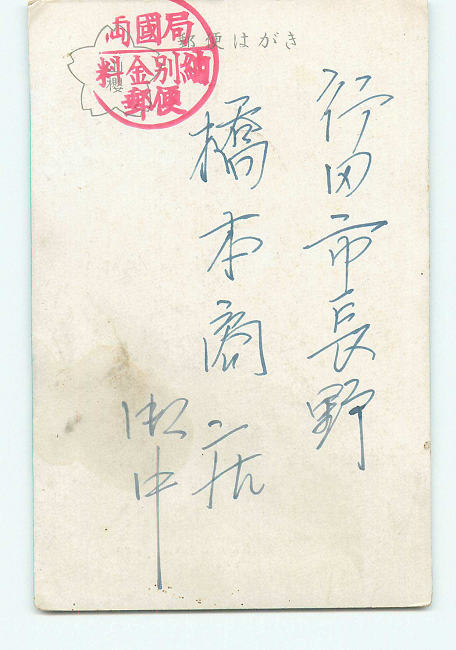 郵便はがき
両國局
料金別納
郵便
櫻
行田市長野
橋本商店
御中